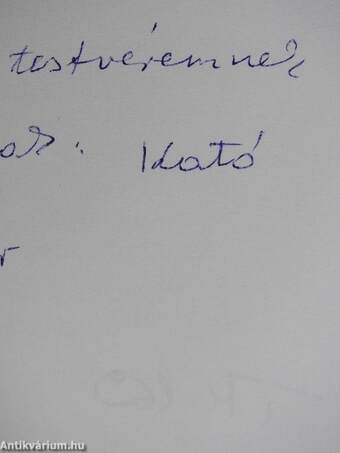 testvéremnek
Kató
Antikvárium.hu